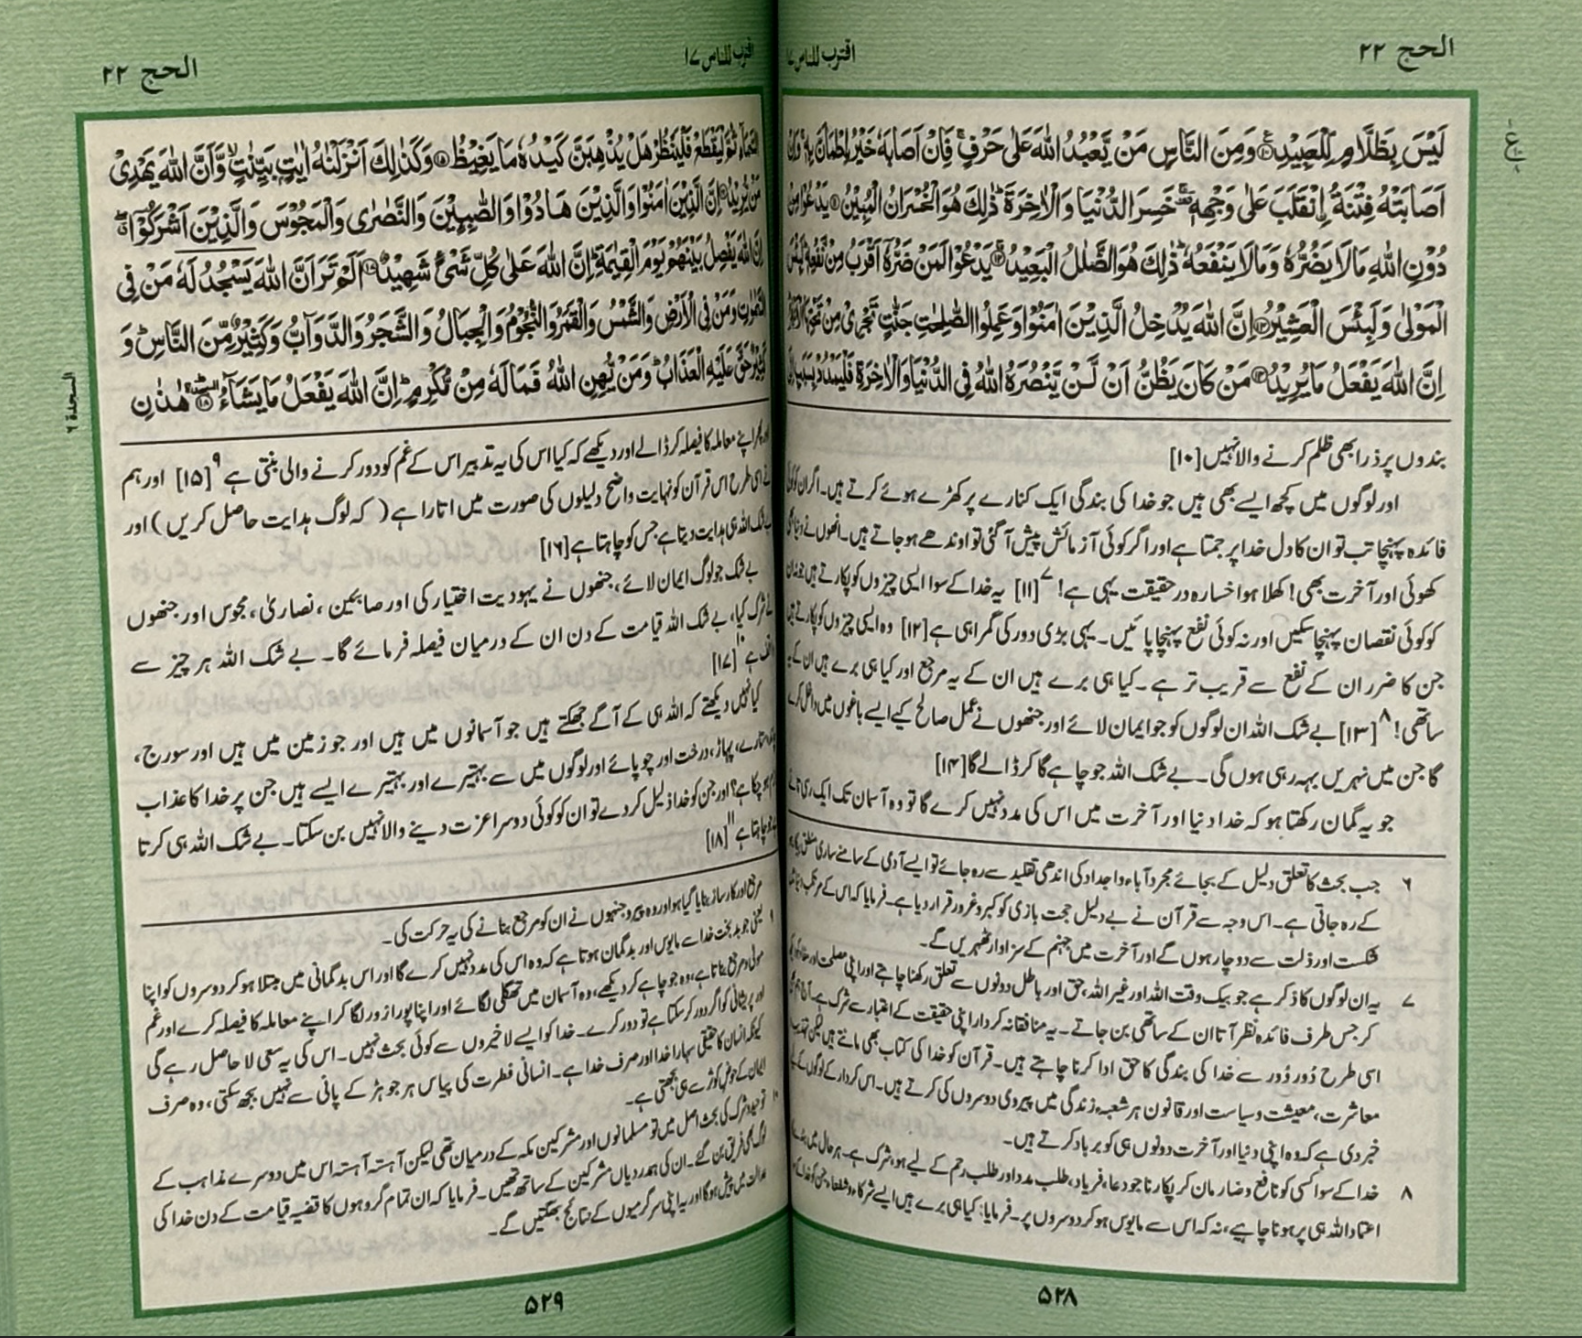 الحج ٢٢
اقترب للناس ١٧
لَيْسَ بِظَلَّامٍ لِّلْعَبِيْدِ ﴿١٠﴾ وَمِنَ النَّاسِ مَنْ يَّعْبُدُ اللّٰهَ عَلٰى حَرْفٍ ۚ فَاِنْ اَصَابَهٗ خَيْرُ ۨاطْمَاَنَّ بِهٖ ۚ وَاِنْ
اَصَابَتْهُ فِتْنَةُ ۨانْقَلَبَ عَلٰى وَجْهِهٖ ۚ خَسِرَ الدُّنْيَا وَالْاٰخِرَةَ ؕ ذٰلِكَ هُوَ الْخُسْرَانُ الْمُبِيْنُ ﴿١١﴾ يَدْعُوْا مِنْ
دُوْنِ اللّٰهِ مَا لَا يَضُرُّهٗ وَمَا لَا يَنْفَعُهٗ ؕ ذٰلِكَ هُوَ الضَّلٰلُ الْبَعِيْدُ ﴿١٢﴾ يَدْعُوْا لَمَنْ ضَرُّهٗۤ اَقْرَبُ مِنْ نَّفْعِهٖ ؕ لَبِئْسَ
الْمَوْلٰى وَلَبِئْسَ الْعَشِيْرُ ﴿١٣﴾ اِنَّ اللّٰهَ يُدْخِلُ الَّذِيْنَ اٰمَنُوْا وَعَمِلُوا الصّٰلِحٰتِ جَنّٰتٍ تَجْرِىْ مِنْ تَحْتِهَا الْاَنْهٰرُ ؕ
اِنَّ اللّٰهَ يَفْعَلُ مَا يُرِيْدُ ﴿١٤﴾ مَنْ كَانَ يَظُنُّ اَنْ لَّنْ يَّنْصُرَهُ اللّٰهُ فِى الدُّنْيَا وَالْاٰخِرَةِ فَلْيَمْدُدْ بِسَبَبٍ اِلَى
بندوں پر ذرا بھی ظلم کرنے والا نہیں [١٠]
اور لوگوں میں کچھ ایسے بھی ہیں جو خدا کی بندگی ایک کنارے پر کھڑے ہوئے کرتے ہیں۔ اگر ان کو کوئی
فائدہ پہنچا تب تو ان کا دل خدا پر جمتا ہے اور اگر کوئی آزمائش پیش آ گئی تو اوندھے ہو جاتے ہیں۔ انھوں نے دنیا بھی
کھوئی اور آخرت بھی! کھلا ہوا خسارہ درحقیقت یہی ہے!٧ [١١] یہ خدا کے سوا ایسی چیزوں کو پکارتے ہیں جو نہ ان
کو کوئی نقصان پہنچا سکیں اور نہ کوئی نفع پہنچا پائیں۔ یہی بڑی دور کی گمراہی ہے [١٢] وہ ایسی چیزوں کو پکارتے ہیں
جن کا ضرر ان کے نفع سے قریب تر ہے۔ کیا ہی برے ہیں ان کے یہ مرجع اور کیا ہی برے ہیں ان کے یہ
ساتھی!٨ [١٣] بے شک اللہ ان لوگوں کو جو ایمان لائے اور جنھوں نے عمل صالح کیے ایسے باغوں میں داخل کرے
گا جن میں نہریں بہہ رہی ہوں گی۔ بے شک اللہ جو چاہے گا کر ڈالے گا [١٤]
جو یہ گمان رکھتا ہو کہ خدا دنیا اور آخرت میں اس کی مدد نہیں کرے گا تو وہ آسمان تک ایک رسی تانے
٦ جب بحث کا تعلق دلیل کے بجائے مجرد آباء و اجداد کی اندھی تقلید سے رہ جائے تو ایسے آدمی کے سامنے ساری منطق بیکار ہو
کے رہ جاتی ہے۔ اس وجہ سے قرآن نے بے دلیل حجت بازی کو کبر و غرور قرار دیا ہے۔ فرمایا کہ اس کے مرتکب دنیا میں
شکست اور ذلت سے دوچار ہوں گے اور آخرت میں جہنم کے سزاوار ٹھہریں گے۔
٧ یہ ان لوگوں کا ذکر ہے جو بیک وقت اللہ اور غیر اللہ، حق اور باطل دونوں سے تعلق رکھنا چاہتے اور اپنی مصلحت اور مفاد کو دیکھ
کر جس طرف فائدہ نظر آتا ان کے ساتھی بن جاتے۔ یہ منافقانہ کردار اپنی حقیقت کے اعتبار سے شرک ہے۔ آج ہم بھی
اسی طرح دُور دُور سے خدا کی بندگی کا حق ادا کرنا چاہتے ہیں۔ قرآن کو خدا کی کتاب بھی مانتے ہیں لیکن تہذیب،
معاشرت، معیشت و سیاست اور قانون ہر شعبہ زندگی میں پیروی دوسروں کی کرتے ہیں۔ اس کردار کے لوگوں کے لیے
خبر دی ہے کہ وہ اپنی دنیا اور آخرت دونوں ہی کو برباد کرتے ہیں۔
٨ خدا کے سوا کسی کو نافع و ضار مان کر پکارنا جو دعا، فریاد، طلب مدد اور طلب رحم کے لیے ہو، شرک ہے۔ ہر حال میں بندے کا
اعتماد اللہ ہی پر ہونا چاہیے، نہ کہ اس سے مایوس ہو کر دوسروں پر۔ فرمایا: کیا ہی برے ہیں ایسے شرکاء و شفعاء جن کو خدا کے
٥٢٨
الحج ٢٢
اقترب للناس ١٧
السَّمَآءِ ثُمَّ لْيَقْطَعْ فَلْيَنْظُرْ هَلْ يُذْهِبَنَّ كَيْدُهٗ مَا يَغِيْظُ ﴿١٥﴾ وَكَذٰلِكَ اَنْزَلْنٰهُ اٰيٰتٍۭ بَيِّنٰتٍ ۙ وَّاَنَّ اللّٰهَ يَهْدِىْ
مَنْ يُّرِيْدُ ﴿١٦﴾ اِنَّ الَّذِيْنَ اٰمَنُوْا وَالَّذِيْنَ هَادُوْا وَالصّٰبِـِٕيْنَ وَالنَّصٰرٰى وَالْمَجُوْسَ وَالَّذِيْنَ اَشْرَكُوْۤا ۖ
اِنَّ اللّٰهَ يَفْصِلُ بَيْنَهُمْ يَوْمَ الْقِيٰمَةِ ؕ اِنَّ اللّٰهَ عَلٰى كُلِّ شَىْءٍ شَهِيْدٌ ﴿١٧﴾ اَلَمْ تَرَ اَنَّ اللّٰهَ يَسْجُدُ لَهٗ مَنْ فِى
السَّمٰوٰتِ وَمَنْ فِى الْاَرْضِ وَالشَّمْسُ وَالْقَمَرُ وَالنُّجُوْمُ وَالْجِبَالُ وَالشَّجَرُ وَالدَّوَآبُّ وَكَثِيْرٌ مِّنَ النَّاسِ ؕ وَ
كَثِيْرٌ حَقَّ عَلَيْهِ الْعَذَابُ ؕ وَمَنْ يُّهِنِ اللّٰهُ فَمَا لَهٗ مِنْ مُّكْرِمٍ ؕ اِنَّ اللّٰهَ يَفْعَلُ مَا يَشَآءُ ﴿١٨﴾ هٰذٰنِ
السجدة ٦
اور پھر اپنے معاملہ کا فیصلہ کر ڈالے اور دیکھے کہ کیا اس کی یہ تدبیر اس کے غم کو دور کرنے والی بنتی ہے٩ [١٥] اور ہم
نے اسی طرح اس قرآن کو نہایت واضح دلیلوں کی صورت میں اتارا ہے (کہ لوگ ہدایت حاصل کریں) اور
بے شک اللہ ہی ہدایت دیتا ہے جس کو چاہتا ہے [١٦]
بے شک جو لوگ ایمان لائے، جنھوں نے یہودیت اختیار کی اور صابئین، نصاریٰ، مجوس اور جنھوں
نے شرک کیا، بے شک اللہ قیامت کے دن ان کے درمیان فیصلہ فرمائے گا۔ بے شک اللہ ہر چیز سے
واقف ہے١٠ [١٧]
کیا نہیں دیکھتے کہ اللہ ہی کے آگے جھکتے ہیں جو آسمانوں میں ہیں اور جو زمین میں ہیں اور سورج،
چاند، ستارے، پہاڑ، درخت اور چوپائے اور لوگوں میں سے بہتیرے اور بہتیرے ایسے ہیں جن پر خدا کا عذاب
لازم ہو چکا ہے؟ اور جن کو خدا ذلیل کر دے تو ان کو کوئی دوسرا عزت دینے والا نہیں بن سکتا۔ بے شک اللہ ہی کرتا
ہے جو چاہتا ہے١١ [١٨]
مرجع اور کارساز بنایا گیا ہو اور وہ پیرو جنہوں نے ان کو مرجع بنانے کی یہ حرکت کی۔
٩ یعنی جو بدبخت خدا سے مایوس اور بدگمان ہوتا ہے کہ وہ اس کی مدد نہیں کرے گا اور اس بدگمانی میں مبتلا ہو کر دوسروں کو اپنا
مولیٰ و مرجع بناتا ہے، وہ جو چاہے کر دیکھے، وہ آسمان میں تھگلی لگائے اور اپنا پورا زور لگا کر اپنے معاملہ کا فیصلہ کرے اور غم
اور پریشانی کو اگر دور کر سکتا ہے تو دور کرے۔ خدا کو ایسے لاخیروں سے کوئی بحث نہیں۔ اس کی یہ سعی لا حاصل رہے گی
کیونکہ انسان کا حقیقی سہارا خدا اور صرف خدا ہے۔ انسانی فطرت کی پیاس ہر جوہڑ کے پانی سے نہیں بجھ سکتی، وہ صرف
ایمان کے حوض کوثر سے ہی بجھتی ہے۔
١٠ توحید و شرک کی بحث اصل میں تو مسلمانوں اور مشرکین مکہ کے درمیان تھی لیکن آہستہ آہستہ اس میں دوسرے مذاہب کے
لوگ بھی فریق بن گئے۔ ان کی ہمدردیاں مشرکین کے ساتھ تھیں۔ فرمایا کہ ان تمام گروہوں کا قضیہ قیامت کے دن خدا کی
عدالت میں پیش ہوگا اور یہ اپنی سرگرمیوں کے نتائج بھگتیں گے۔
٥٢٩